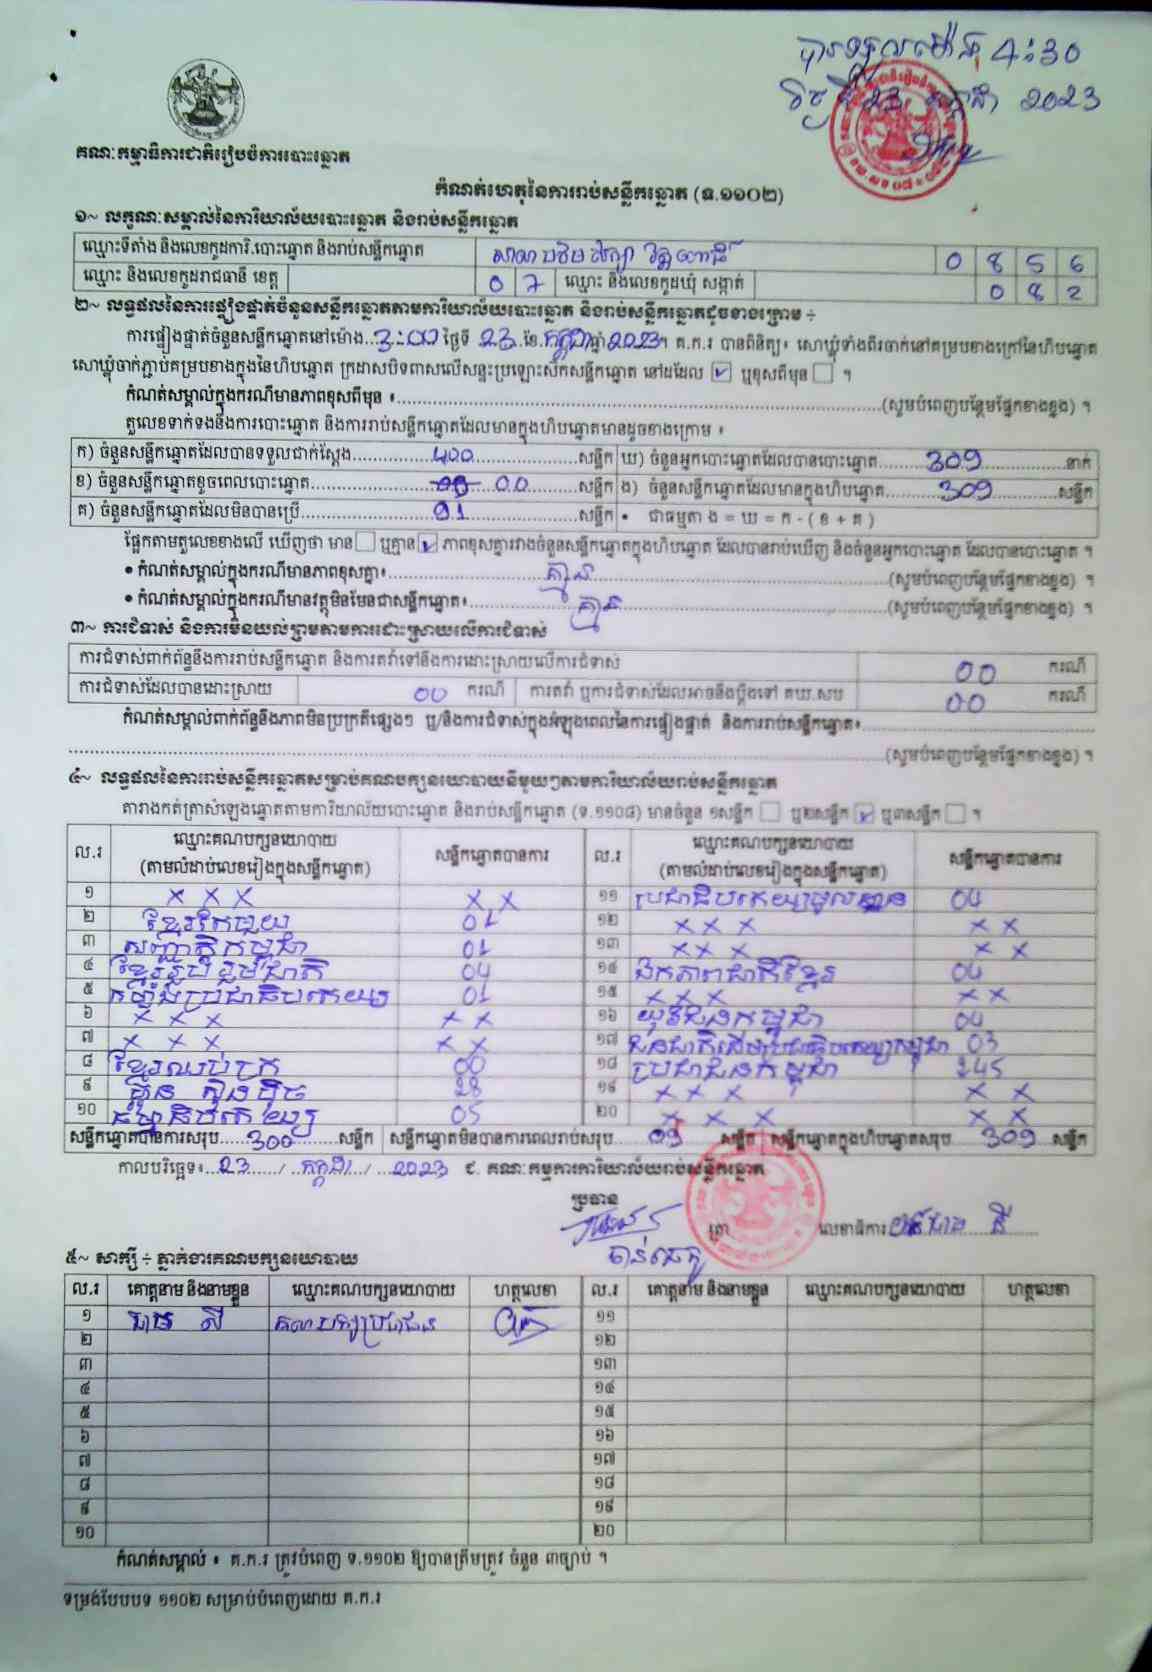 បានទទួលម៉ោង 4:30
ថ្ងៃទី 23 កក្កដា 2023
គណៈកម្មាធិការជាតិរៀបចំការបោះឆ្នោត
កំណត់ហេតុនៃការរាប់សន្លឹកឆ្នោត (ទ.១១០២)
១~ លក្ខណៈសម្គាល់នៃការិយាល័យបោះឆ្នោត និងរាប់សន្លឹកឆ្នោត
ឈ្មោះទីតាំង និងលេខកូដការិ.បោះឆ្នោត និងរាប់សន្លឹកឆ្នោត 0 8 5 6
ឈ្មោះ និងលេខកូដរាជធានី ខេត្ត 0 7 ឈ្មោះ និងលេខកូដឃុំ សង្កាត់ 0 8 2
២~ លទ្ធផលនៃការផ្ទៀងផ្ទាត់ចំនួនសន្លឹកឆ្នោតតាមការិយាល័យបោះឆ្នោត និងរាប់សន្លឹកឆ្នោតដូចខាងក្រោម ÷
ការផ្ទៀងផ្ទាត់ចំនួនសន្លឹកឆ្នោតនៅម៉ោង...3:00 ថ្ងៃទី 23 ខែ កក្កដា ឆ្នាំ 2023។ គ.ក.រ បានពិនិត្យ៖ សោឃ្លុំទាំងពីរចាក់នៅគម្របខាងក្រៅនៃហិបឆ្នោត
សោឃ្លុំចាក់ភ្ជាប់គម្របខាងក្នុងនៃហិបឆ្នោត ក្រដាសបិទពាសលើសន្ទះប្រឡោះស៊កសន្លឹកឆ្នោត នៅដដែល ☑ ឬខុសពីមុន ☐ ។
កំណត់សម្គាល់ក្នុងករណីមានភាពខុសពីមុន ៖ (សូមបំពេញបន្ថែមផ្នែកខាងខ្នង) ។
តួលេខទាក់ទងនឹងការបោះឆ្នោត និងការរាប់សន្លឹកឆ្នោតដែលមានក្នុងហិបឆ្នោតមានដូចខាងក្រោម ៖
ក) ចំនួនសន្លឹកឆ្នោតដែលបានទទួលជាក់ស្តែង 400 សន្លឹក ឃ) ចំនួនអ្នកបោះឆ្នោតដែលបានបោះឆ្នោត 309 នាក់
ខ) ចំនួនសន្លឹកឆ្នោតខូចពេលបោះឆ្នោត 00 សន្លឹក ង) ចំនួនសន្លឹកឆ្នោតដែលមានក្នុងហិបឆ្នោត 309 សន្លឹក
គ) ចំនួនសន្លឹកឆ្នោតដែលមិនបានប្រើ 91 សន្លឹក • ជាធម្មតា ង = ឃ = ក - ( ខ + គ )
ផ្អែកតាមតួលេខខាងលើ ឃើញថា មាន ☐ ឬគ្មាន ☑ ភាពខុសគ្នារវាងចំនួនសន្លឹកឆ្នោតក្នុងហិបឆ្នោត ដែលបានរាប់ឃើញ និងចំនួនអ្នកបោះឆ្នោត ដែលបានបោះឆ្នោត ។
• កំណត់សម្គាល់ក្នុងករណីមានភាពខុសគ្នា៖ គ្មាន (សូមបំពេញបន្ថែមផ្នែកខាងខ្នង) ។
• កំណត់សម្គាល់ក្នុងករណីមានវត្ថុមិនមែនជាសន្លឹកឆ្នោត៖ គ្មាន (សូមបំពេញបន្ថែមផ្នែកខាងខ្នង) ។
៣~ ការជំទាស់ និងការមិនយល់ព្រមតាមការដោះស្រាយលើការជំទាស់
ការជំទាស់ពាក់ព័ន្ធនឹងការរាប់សន្លឹកឆ្នោត និងការតវ៉ាទៅនឹងការដោះស្រាយលើការជំទាស់ 00 ករណី
ការជំទាស់ដែលបានដោះស្រាយ 00 ករណី ការតវ៉ា ឬការជំទាស់ដែលអាចនឹងប្តឹងទៅ គឃ.សប 00 ករណី
កំណត់សម្គាល់ពាក់ព័ន្ធនឹងភាពមិនប្រក្រតីផ្សេងៗ ឬ/និងការជំទាស់ក្នុងអំឡុងពេលនៃការផ្ទៀងផ្ទាត់ និងការរាប់សន្លឹកឆ្នោត៖
(សូមបំពេញបន្ថែមផ្នែកខាងខ្នង) ។
៤~ លទ្ធផលនៃការរាប់សន្លឹកឆ្នោតសម្រាប់គណបក្សនយោបាយនីមួយៗតាមការិយាល័យរាប់សន្លឹកឆ្នោត
តារាងកត់ត្រាសំឡេងឆ្នោតតាមការិយាល័យបោះឆ្នោត និងរាប់សន្លឹកឆ្នោត (ទ.១១០៨) មានចំនួន ១សន្លឹក ☐ ឬ២សន្លឹក ☑ ឬ៣សន្លឹក ☐ ។
ល.រ ឈ្មោះគណបក្សនយោបាយ (តាមលំដាប់លេខរៀងក្នុងសន្លឹកឆ្នោត) សន្លឹកឆ្នោតបានការ ល.រ ឈ្មោះគណបក្សនយោបាយ (តាមលំដាប់លេខរៀងក្នុងសន្លឹកឆ្នោត) សន្លឹកឆ្នោតបានការ
១ x x x x x ១១ ប្រជាធិបតេយ្យមូលដ្ឋាន 04
២ ខ្មែរតែមួយ 01 ១២ x x x x x
៣ សញ្ជាតិកម្ពុជា 01 ១៣ x x x x x
៤ ខ្មែររួបរួមជាតិ 04 ១៤ ឯកភាពជាតិខ្មែរ 04
៥ កម្លាំងប្រជាធិបតេយ្យ 01 ១៥ x x x x x
៦ x x x x x ១៦ យុវជនកម្ពុជា 04
៧ x x x x x ១៧ ជនជាតិដើមប្រជាធិបតេយ្យកម្ពុជា 03
៨ ខ្មែរឈប់ក្រ 00 ១៨ ប្រជាជនកម្ពុជា 245
៩ ហ៊្វុនស៊ិនប៉ិច 28 ១៩ x x x x x
១០ ធម្មាធិបតេយ្យ 05 ២០ x x x x x
សន្លឹកឆ្នោតបានការសរុប 300 សន្លឹក សន្លឹកឆ្នោតមិនបានការពេលរាប់សរុប 09 សន្លឹក សន្លឹកឆ្នោតក្នុងហិបឆ្នោតសរុប 309 សន្លឹក
កាលបរិច្ឆេទ៖ 23 / កក្កដា / 2023 ជ. គណៈកម្មការការិយាល័យរាប់សន្លឹកឆ្នោត
ប្រធាន
ត្រា លេខាធិការ
៥~ សាក្សី ÷ ភ្នាក់ងារគណបក្សនយោបាយ
ល.រ គោត្តនាម និងនាមខ្លួន ឈ្មោះគណបក្សនយោបាយ ហត្ថលេខា ល.រ គោត្តនាម និងនាមខ្លួន ឈ្មោះគណបក្សនយោបាយ ហត្ថលេខា
១ គណបក្សប្រជាជន ១១
២ ១២
៣ ១៣
៤ ១៤
៥ ១៥
៦ ១៦
៧ ១៧
៨ ១៨
៩ ១៩
១០ ២០
កំណត់សម្គាល់ ៖ គ.ក.រ ត្រូវបំពេញ ទ.១១០២ ឱ្យបានត្រឹមត្រូវ ចំនួន ៣ច្បាប់ ។
ទម្រង់បែបបទ ១១០២ សម្រាប់បំពេញដោយ គ.ក.រ